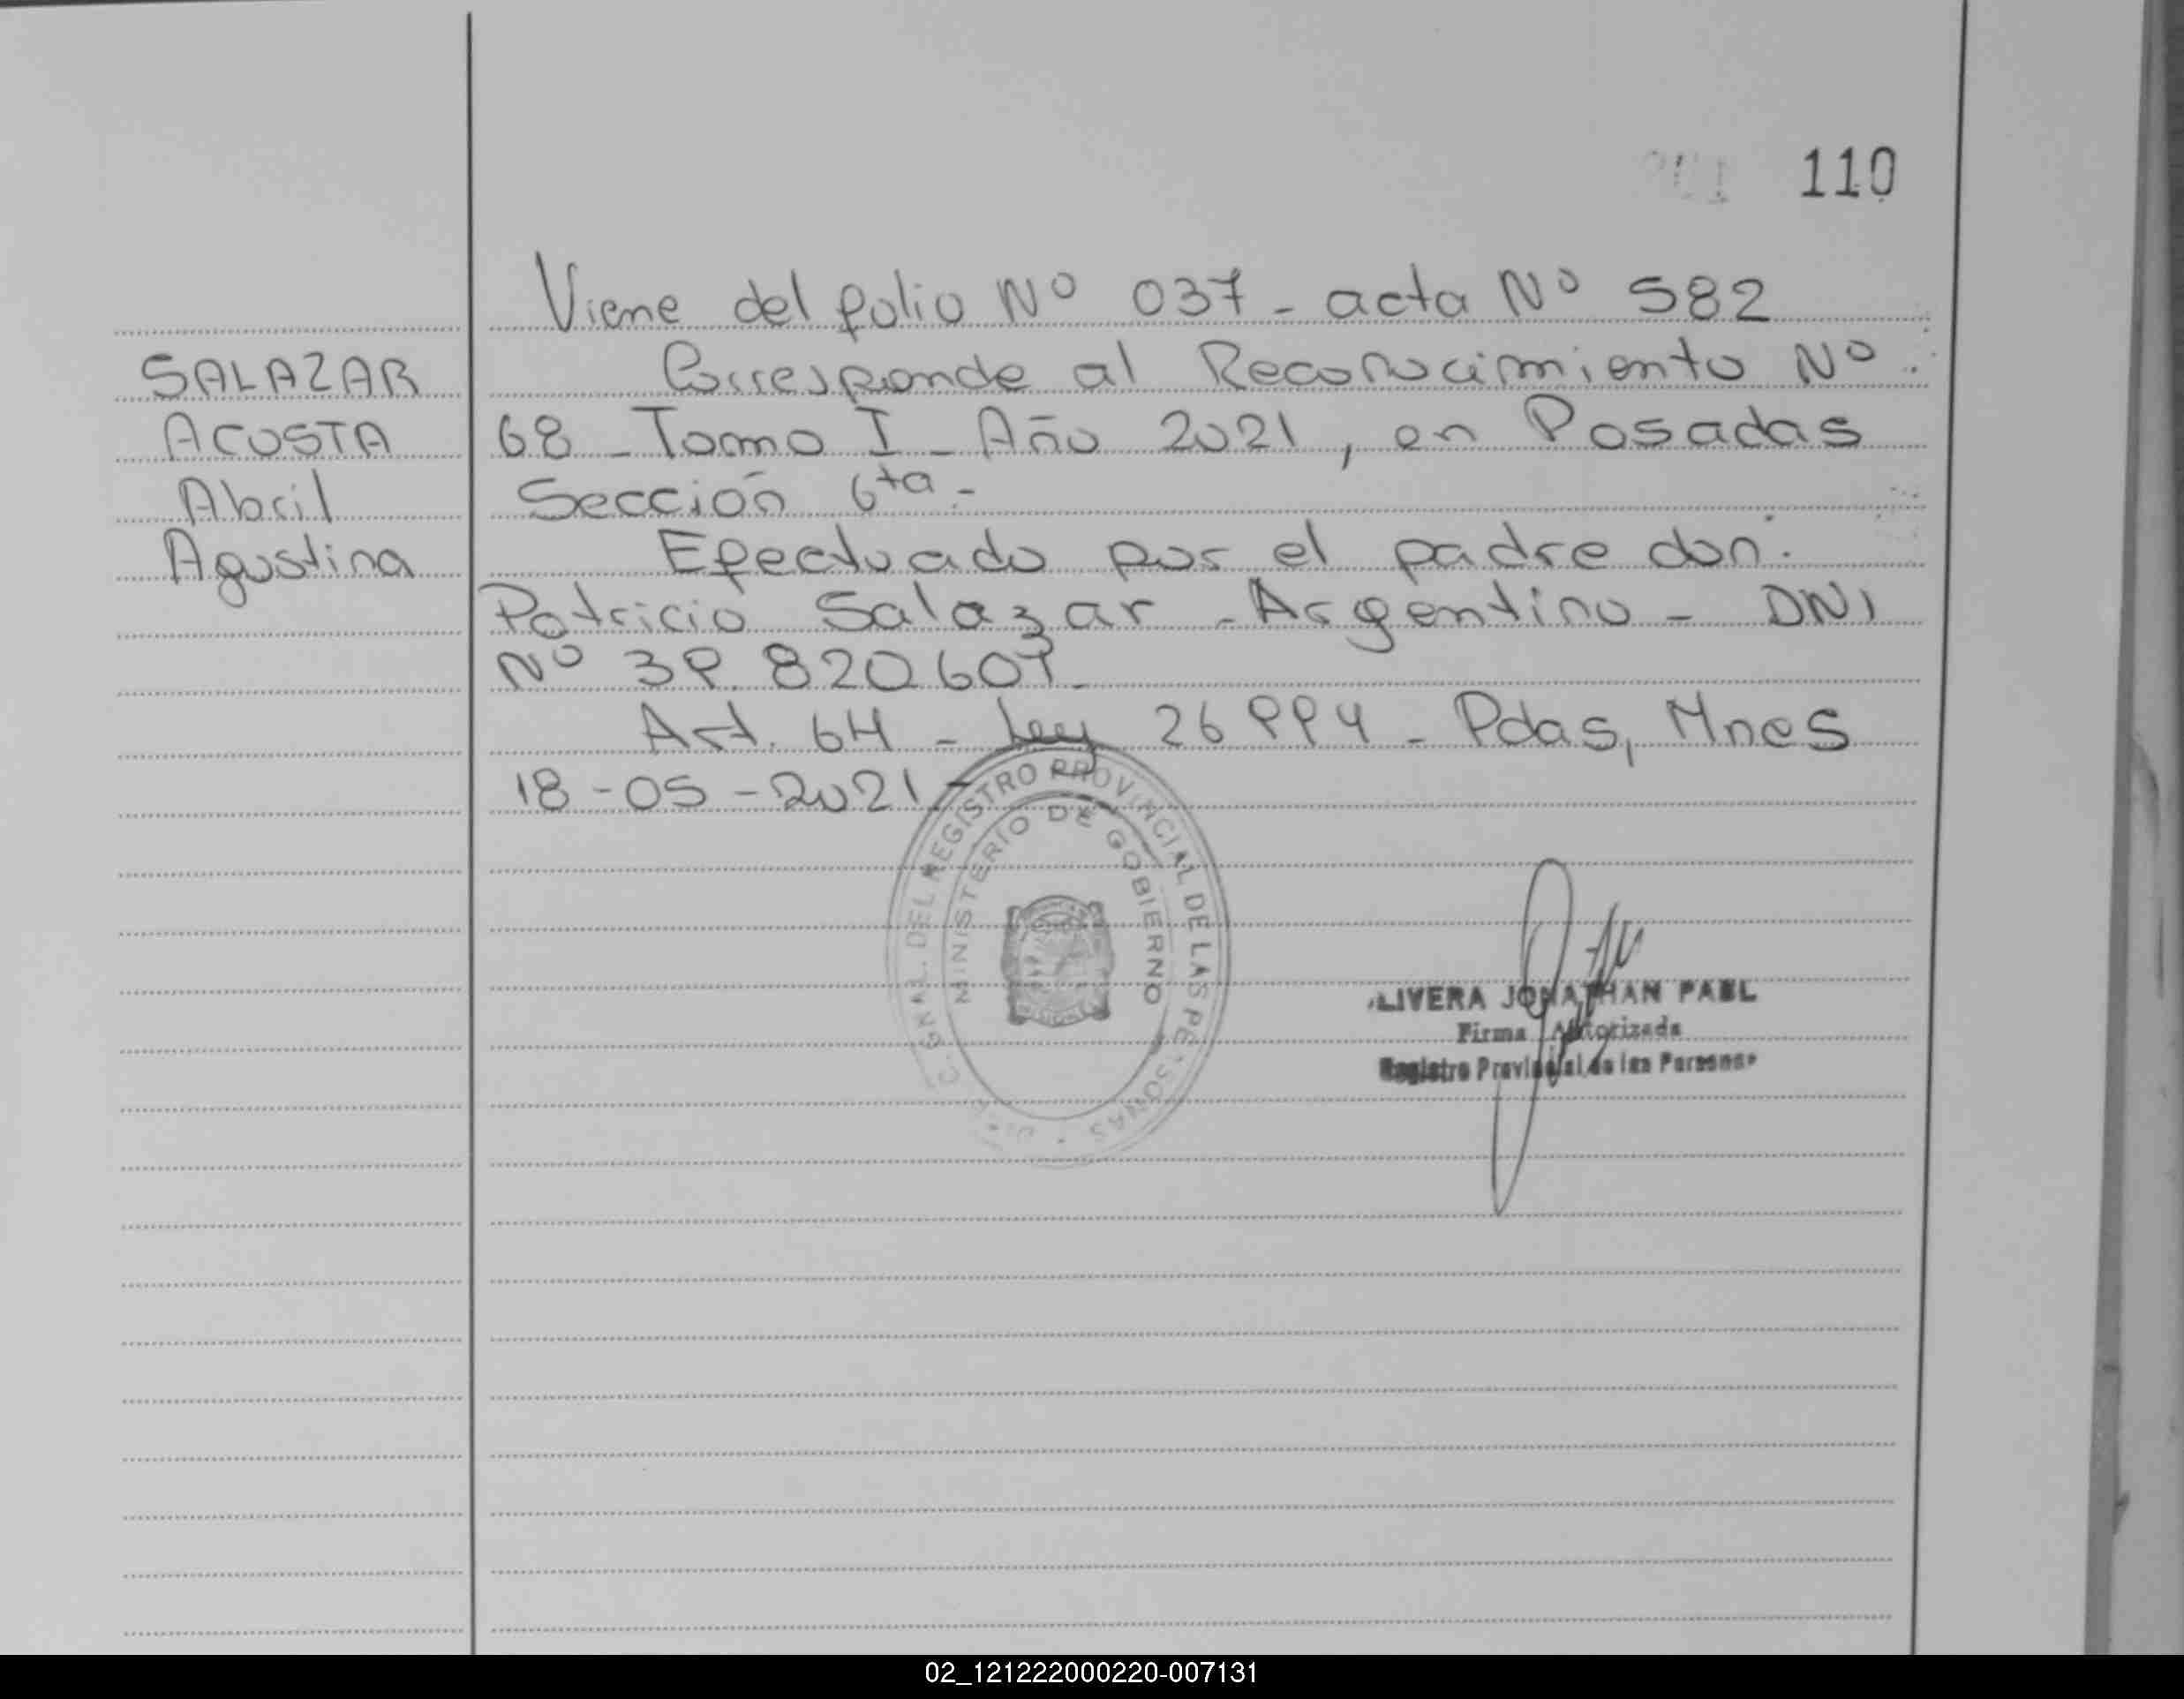 110
Viene del folio Nº 037 - acta Nº 582
SALAZAR
ACOSTA
Abril
Agustina
Corresponde al Reconocimiento Nº
68 - Tomo I - Año 2021, en Posadas
Sección 6ta -
Efectuado por el padre don:
Patricio Salazar - Argentino - DNI
Nº 39.820607.
Art. 64 - Ley 26994 - Pdas, Mnes
18-05-2021 -
GRAL. DEL REGISTRO PROVINCIAL DE LAS PERSONAS
MINISTERIO DE GOBIERNO
LIVERA JONATHAN PABL
Firma Autorizada
Registro Provincial de las Personas
02_121222000220-007131